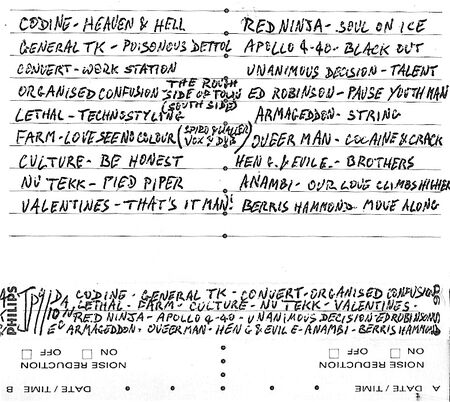 CODINE - HEAVEN & HELL
GENERAL TK - POISONOUS DETTOL
CONVERT - WORK STATION
ORGANISED CONFUSION - THE ROUGH SIDE OF TOWN (SOUTH SIDE)
LETHAL - TECHNOSTYLING
FARM - LOVE SEE NO COLOUR (SPIRO & WALLER VOX & DUB)
CULTURE - BE HONEST
NU TEKK - PIED PIPER
VALENTINES - THAT'S IT MAN!
RED NINJA - SOUL ON ICE
APOLLO 4-40 - BLACK OUT
UNANIMOUS DECISION - TALENT
ED ROBINSON - PAUSE YOUTHMAN
ARMAGEDDON - STRING
QUEER MAN - COCAINE & CRACK
HEN G. & EVIL E - BROTHERS
ANAMBI - OUR LOVE CLIMBS HIGHER
BERRIS HAMMOND MOVE ALONG
PHILIPS
CODINE - GENERAL TK - CONVERT - ORGANISED CONFUSION
LETHAL - FARM - CULTURE - NU TEKK - VALENTINES -
RED NINJA - APOLLO 4-40 - UNANIMOUS DECISION - ED ROBINSON
ARMAGEDDON - QUEERMAN - HEN G & EVIL E - ANAMBI - BERRIS HAMMOND
A DATE / TIME
NOISE REDUCTION
ON OFF
B DATE / TIME
NOISE REDUCTION
ON OFF